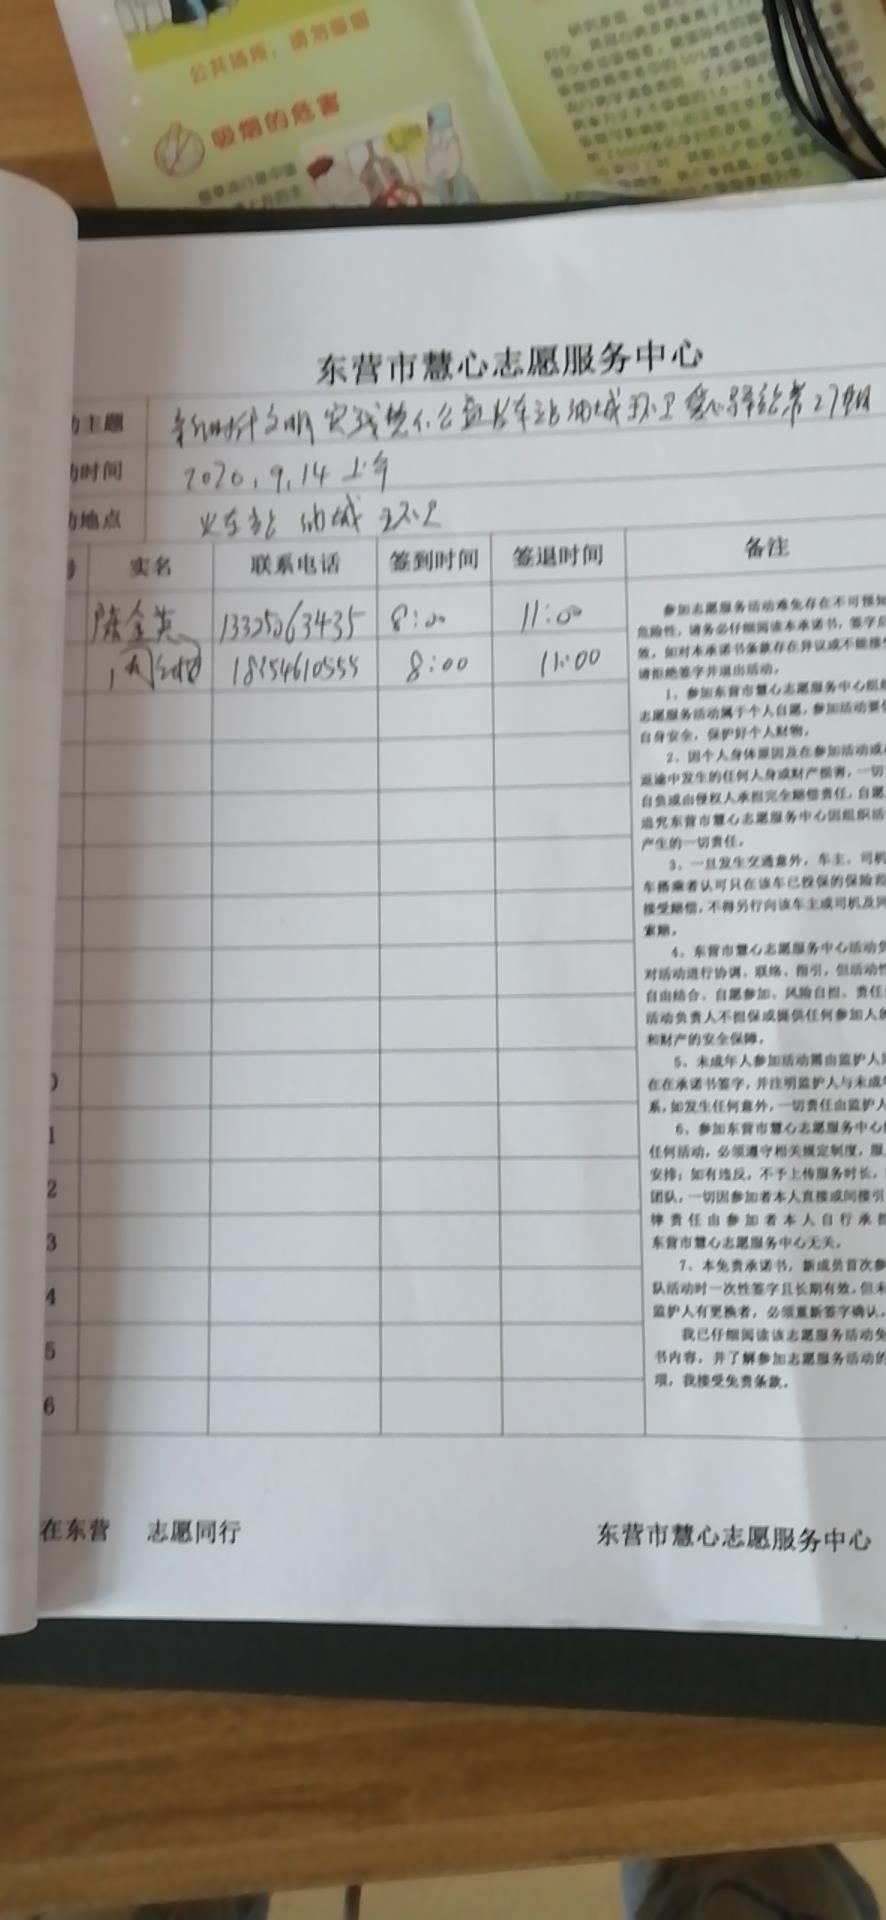 公共场所，请勿吸烟
吸烟的危害
东营市慧心志愿服务中心
主题 新时代文明实践 公益 火车站油城环卫爱心驿站第27期
时间 2020.9.14上午
地点 火车站 油城 环卫
实名 联系电话 签到时间 签退时间 备注
陈金英 13325063435 8:00 11:00
18254610555 8:00 11:00
参加志愿服务活动难免存在不可预知
危险性，请务必仔细阅读本承诺书，签字后
效，如对本承诺书条款存在异议或不能接受
请拒绝签字并退出活动。
1、参加东营市慧心志愿服务中心组织
志愿服务活动属于个人自愿，参加活动要
自身安全，保护好个人财物。
2、因个人身体原因及在参加活动或
返途中发生的任何人身或财产损害，一切
自负或由侵权人承担完全赔偿责任，自愿
追究东营市慧心志愿服务中心因组织活
产生的一切责任。
3、一旦发生交通意外，车主、司机
车搭乘者认可只在该车已投保的保险范
接受赔偿，不得另行向该车主或司机及同
索赔。
4、东营市慧心志愿服务中心活动负
对活动进行协调、联络、指引，但活动性
自由结合、自愿参加、风险自担、责任
活动负责人不担保或提供任何参加人的
和财产的安全保障。
5、未成年人参加活动需由监护人
在在承诺书签字，并注明监护人与未成年
系，如发生任何意外，一切责任由监护人
6、参加东营市慧心志愿服务中心
任何活动，必须遵守相关规定制度，服
安排；如有违反，不予上传服务时长，
团队，一切因参加者本人直接或间接引
律责任由参加者本人自行承担
东营市慧心志愿服务中心无关。
7、本免责承诺书，新成员首次参
队活动时一次性签字且长期有效，但未
监护人有更换者，必须重新签字确认。
我已仔细阅读该志愿服务活动免
书内容，并了解参加志愿服务活动的
项，我接受免责条款。
1
2
3
4
5
6
在东营 志愿同行 东营市慧心志愿服务中心